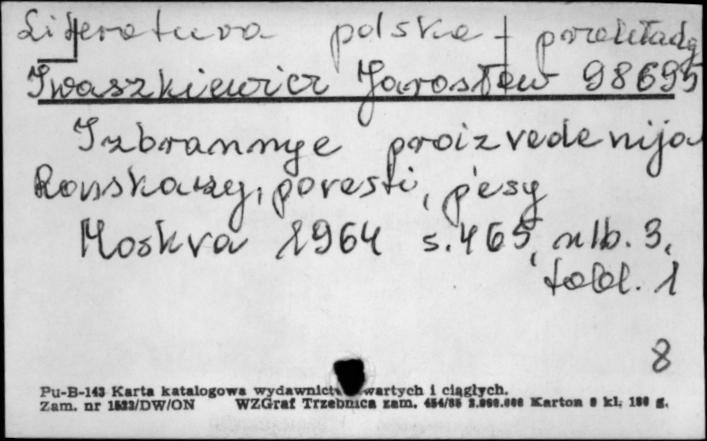 Literatura polska - przekłady
Iwaszkiewicz Jarosław 98695
Izbrannye proizvedenija
Rasskazy, povesti, p'esy
Moskva 1964 s. 465, nlb. 3,
tabl. 1
8
Pu-B-143 Karta katalogowa wydawnictw zwartych i ciągłych.
Zam. nr 1532/DW/ON WZGraf Trzebnica zam. 454/85 2.000.000 Karton 8 kl. 180 g.